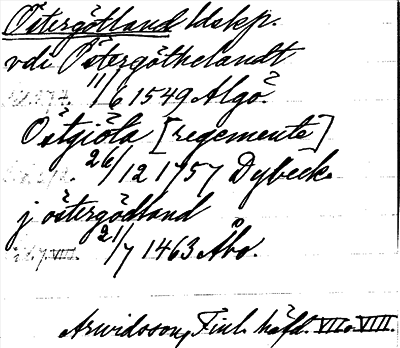 Östergötland ldskp.
vdi Östergöthelandt
11/6 1549 Algö.
Östgiöta [regemente]
26/12 1757 Dybeck.
j östergödland
21/7 1463 Åbo.
Arwidsson, Finl. häfd. VII o. VIII.